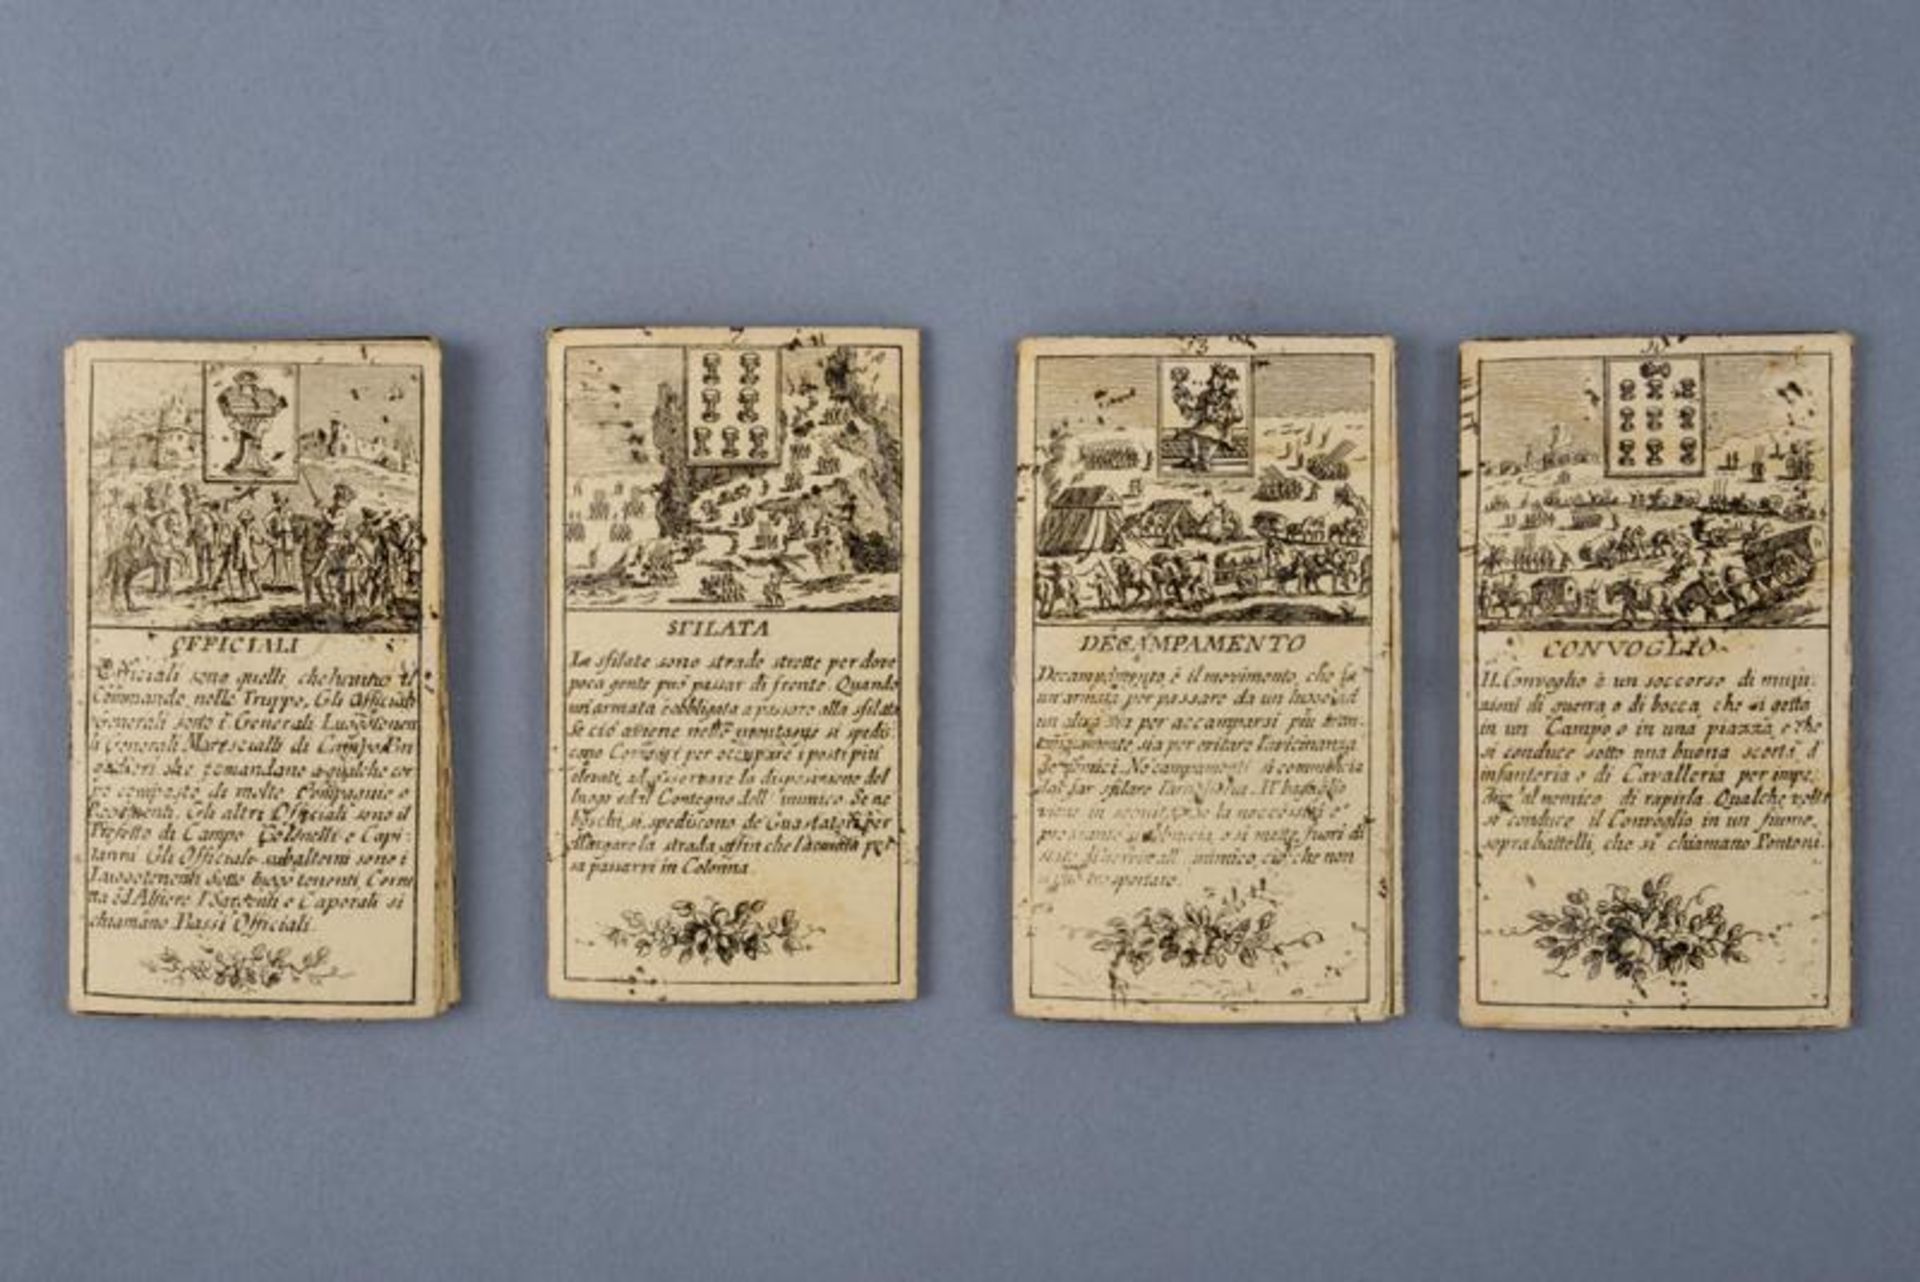 OFFICIALI
Officiali sono quelli, che hanno il
Commando nelle Truppe. Gli Officiali
Generali sono i Generali Luogotenen
ti Generali Marescialli di Campo
che comandano a qualche cor
po composto di molte Compagnie o
Gli altri Officiali sono il
Prefetto di Campo Colonelli e Capi-
tanni. Gli Officiali subalterni sono i
Luogotenenti Sotto luogotenenti, Corne
tta ed Alfiere. I Sargenti e Caporali si
chiamano Bassi Officiali.
7
SFILATA
Le sfilate sono strade strette per dove
poca gente può passar di fronte. Quando
un'armata è obbligata a passare alla sfilata
Se ciò aviene nelle montagne si spedis-
cono per occupare i posti più
elevati, ad osservare la disposizione del
luogo ed il Contegno dell' inimico. Se ne
boschi, si spediscono de Guastatori per
allargare la strada affin che l'armata pos
sa passarvi in Colonna
13
DECAMPAMENTO
Decampamento è il movimento, che fa
un'armata per passare da un luogo ad
un altro sia per accamparsi più tran-
quilamente sia per evitare l'avicinanza
de nemici. Ne campamenti si comincia
dal far sfilare Il bagaglio
viene in seguito, se la necessità è
pressante si abbrucia, o si mette fuori di
stato di servire all' inimico, ciò che non
si può trasportare.
10
CONVOGLIO
Il Convoglio è un soccorso di muni-
zioni di guerra, o di bocca, che si getta
in un Campo o in una piazza, e che
si conduce sotto una buona scorta d'
infanteria o di Cavalleria per impe-
dire al nemico di rapirla. Qualche volta
si conduce il Convoglio in un fiume
sopra battelli, che si chiamano Pontoni.